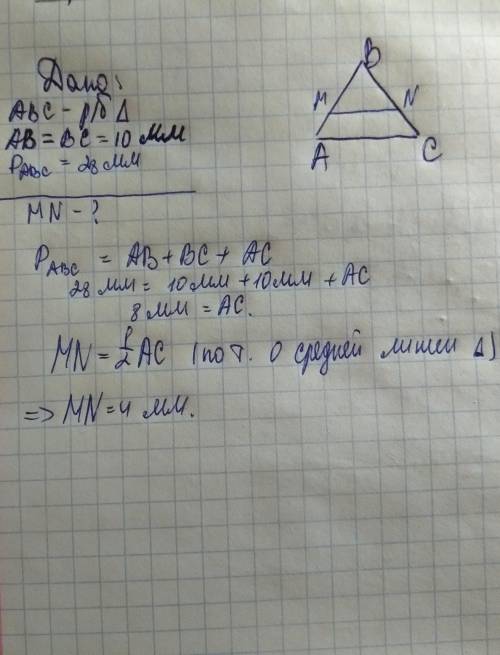 Дано:
ABC - р/б Δ
AB = BC = 10 мм
P_ABC = 28 мм
MN - ?
B
M
N
A
C
P_ABC = AB + BC + AC
28 мм = 10 мм + 10 мм + AC
8 мм = AC.
MN = 1/2 AC (по т. о средней линии Δ)
=> MN = 4 мм.